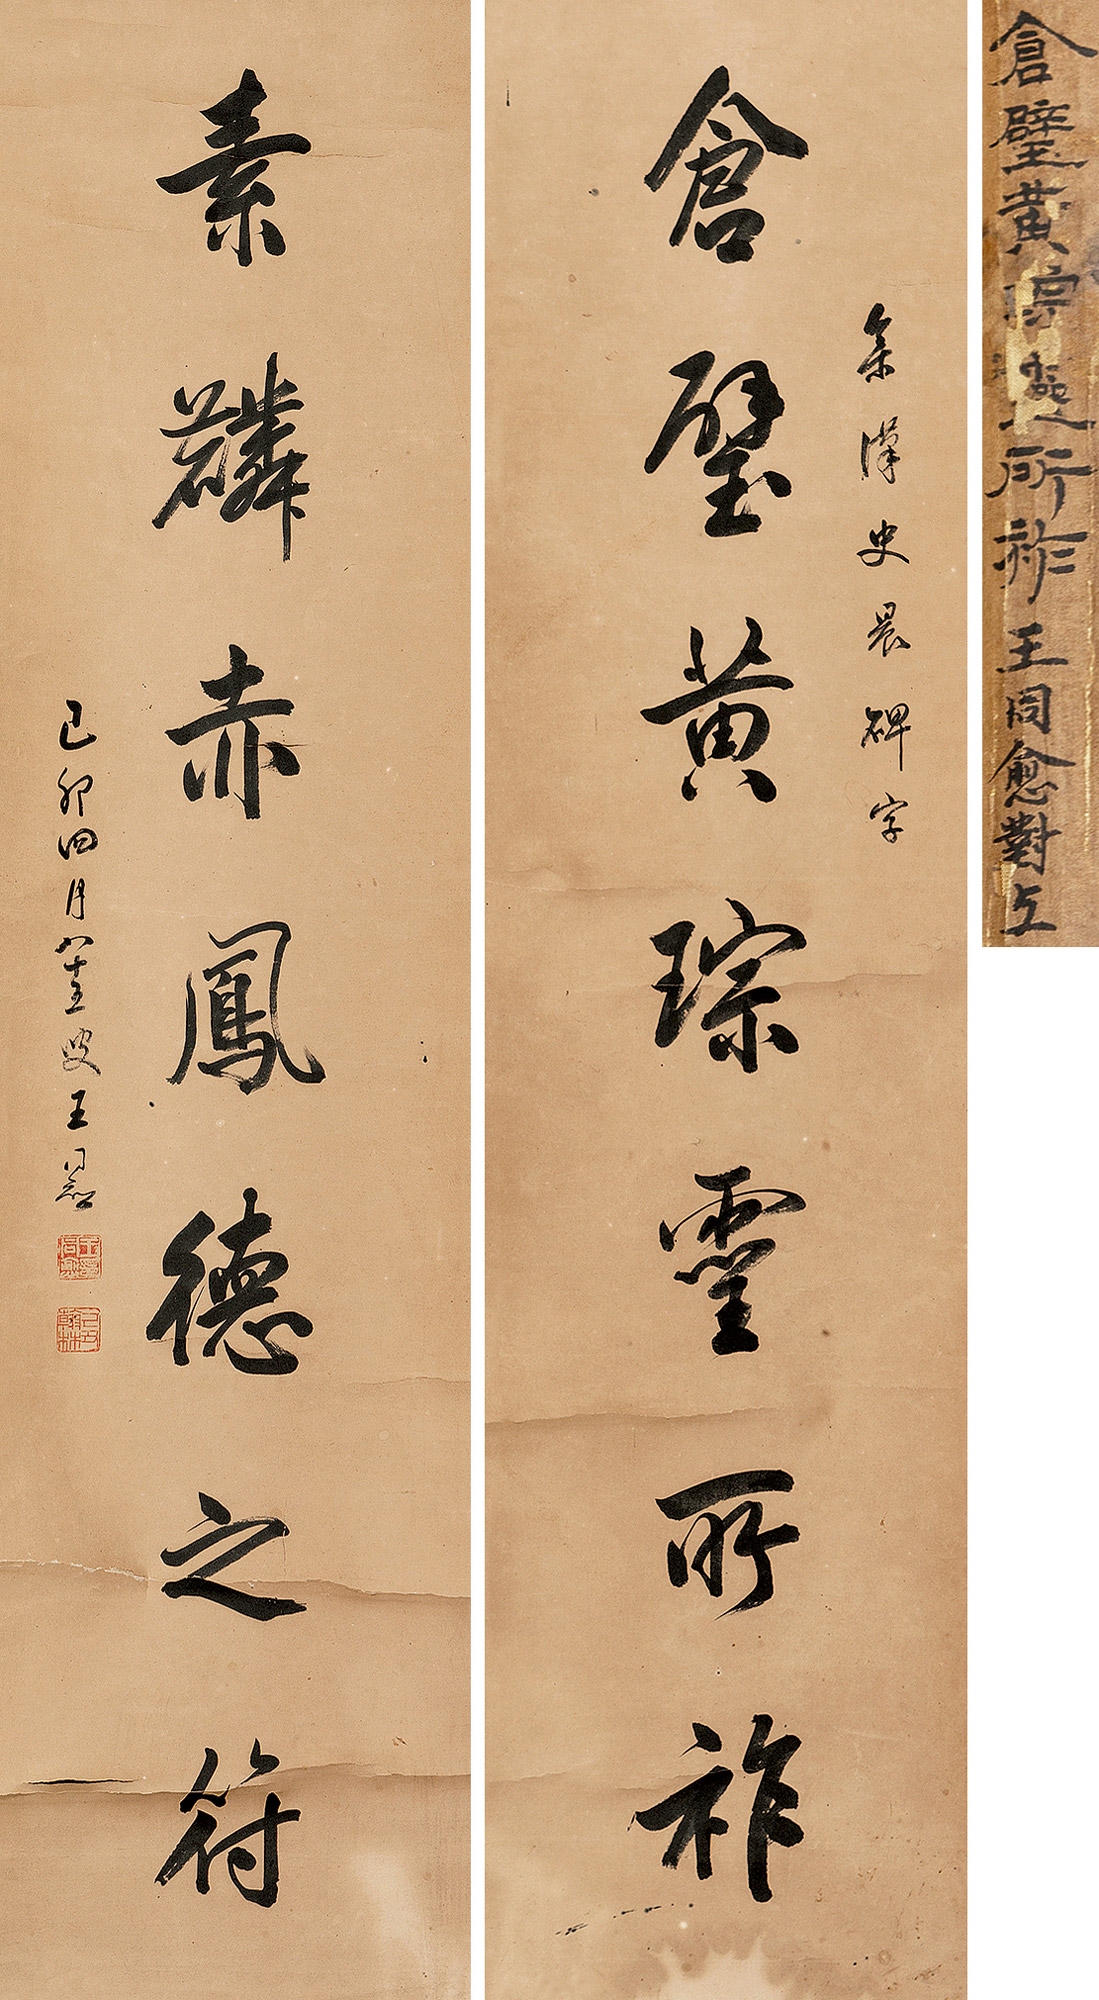 倉璧黃琮靈所祚王同愈對上
集漢史晨碑字
倉璧黃琮靈所祚
素麟赤鳳德之符
己卯四月八十五叟王同愈
己丑翰林